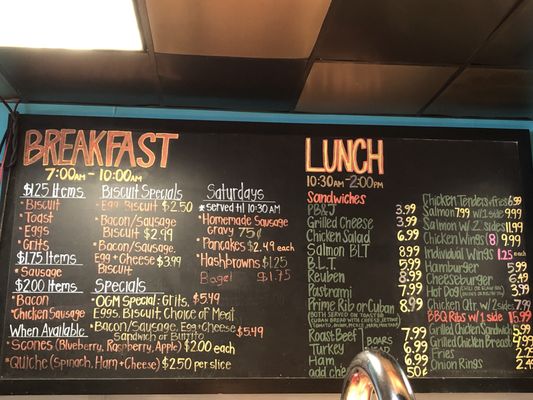 BREAKFAST
7:00AM - 10:00AM
$1.25 Items
Biscuit
Toast
Eggs
Grits
$1.75 Items
Sausage
$2.00 Items
Bacon
Chicken Sausage
When Available
Scones (Blueberry, Raspberry, Apple) $2.00 each
Quiche (Spinach, Ham + Cheese) $2.50 per slice
Biscuit Specials
Egg Biscuit $2.50
Bacon/Sausage
Biscuit $2.99
Bacon/Sausage,
Egg + Cheese $3.99
Biscuit
Specials
OGM Special: Grits, $5.49
Eggs, Biscuit, Choice of Meat
Bacon/Sausage, Egg + Cheese $5.49
Sandwich or Burrito
Saturdays
*served til 10:30AM
Homemade Sausage
Gravy 75¢
Pancakes $2.49 each
Hashbrowns $1.25
Bagel $1.75
LUNCH
10:30AM - 2:00PM
Sandwiches
PB&J 3.99
Grilled Cheese 3.99
Chicken Salad 6.99
Salmon BLT 8.99
B.L.T.
Reuben
Pastrami 7.99
Prime Rib or Cuban 8.99
Roast Beef 7.99
Turkey 6.99
Ham 6.99
add cheese .50¢
BOARS HEAD
Chicken Tenders w/ Fries 6.99
Salmon 7.99 w/ 1 side 9.99
Salmon w/ 2 sides 11.99
Chicken Wings (8) 9.99
Individual Wings 1.25 each
Hamburger 5.99
Cheeseburger 6.49
Hot Dog 3.99
Chicken Qtr w/ 2 sides 7.99
BBQ Ribs w/ 1 side 15.99
Grilled Chicken Sandwich 5.99
Grilled Chicken Breast 4.99
Fries 2.25
Onion Rings 2.49